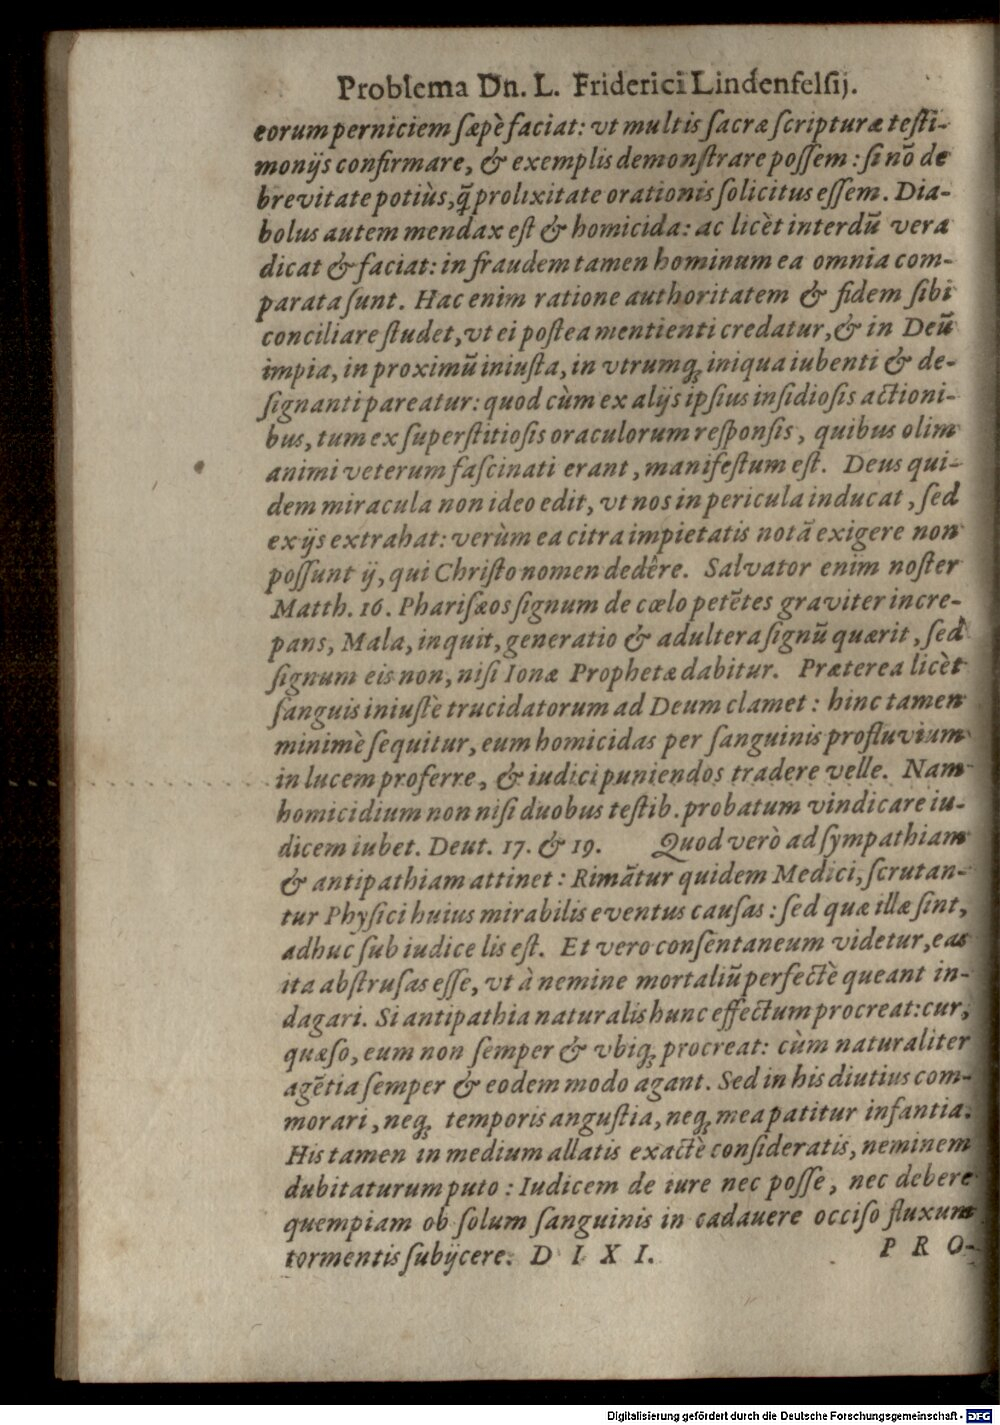 Problema Dn. L. Friderici Lindenfelsij.
eorum perniciem sæpè faciat: vt multis sacræ scripturæ testi-
monijs confirmare, & exemplis demonstrare possem: si nõ de
brevitate potiùs, q̃ prolixitate orationis solicitus essem. Dia-
bolus autem mendax est & homicida: ac licèt interdũ vera
dicat & faciat: in fraudem tamen hominum ea omnia com-
parata sunt. Hac enim ratione authoritatem & fidem sibi
conciliare studet, vt ei postea mentienti credatur, & in Deũ
impia, in proximũ iniusta, in vtrumq; iniqua iubenti & de-
signanti pareatur: quod cùm ex alijs ipsius insidiosis actioni-
bus, tum ex superstitiosis oraculorum responsis, quibus olim
animi veterum fascinati erant, manifestum est. Deus qui-
dem miracula non ideo edit, vt nos in pericula inducat, sed
ex ijs extrahat: verùm ea citra impietatis notã exigere non
possunt ij, qui Christo nomen dedêre. Salvator enim noster
Matth. 16. Pharisæos signum de cœlo petẽtes graviter incre-
pans, Mala, inquit, generatio & adultera signũ quærit, sed
signum eis non, nisi Ionæ Prophetæ dabitur. Præterea licèt
sanguis iniustè trucidatorum ad Deum clamet: hinc tamen
minimè sequitur, eum homicidas per sanguinis profluvium
in lucem proferre, & iudici puniendos tradere velle. Nam
homicidium non nisi duobus testib. probatum vindicare iu-
dicem iubet. Deut. 17. & 19. Quod verò ad sympathiam
& antipathiam attinet: Rimãtur quidem Medici, scrutan-
tur Physici huius mirabilis eventus causas: sed quæ illæ sint,
adhuc sub iudice lis est. Et vero consentaneum videtur, eas
ita abstrusas esse, vt à nemine mortaliũ perfectè queant in-
dagari. Si antipathia naturalis hunc effectum procreat: cur,
quæso, eum non semper & vbiq; procreat: cùm naturaliter
agẽtia semper & eodem modo agant. Sed in his diutius com-
morari, neq; temporis angustia, neq; mea patitur infantia.
His tamen in medium allatis exactè consideratis, neminem
dubitaturum puto: Iudicem de iure nec posse, nec debere
quempiam ob solum sanguinis in cadauere occiso fluxum
tormentis subijcere. D I X I.
P R O-
Digitalisierung gefördert durch die Deutsche Forschungsgemeinschaft - DFG